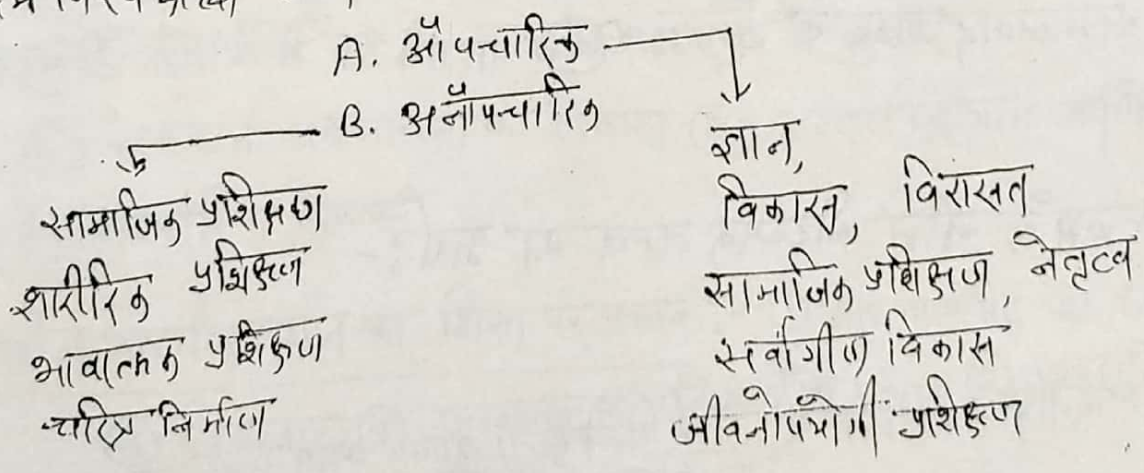 A. औपचारिक
B. अनौपचारिक
सामाजिक प्रशिक्षण
शारीरिक प्रशिक्षण
भावात्मक प्रशिक्षण
चरित्र निर्माण
ज्ञान,
विकास, विरासत
सामाजिक प्रशिक्षण, नेतृत्व
सर्वांगीण विकास
जीवनोपयोगी प्रशिक्षण